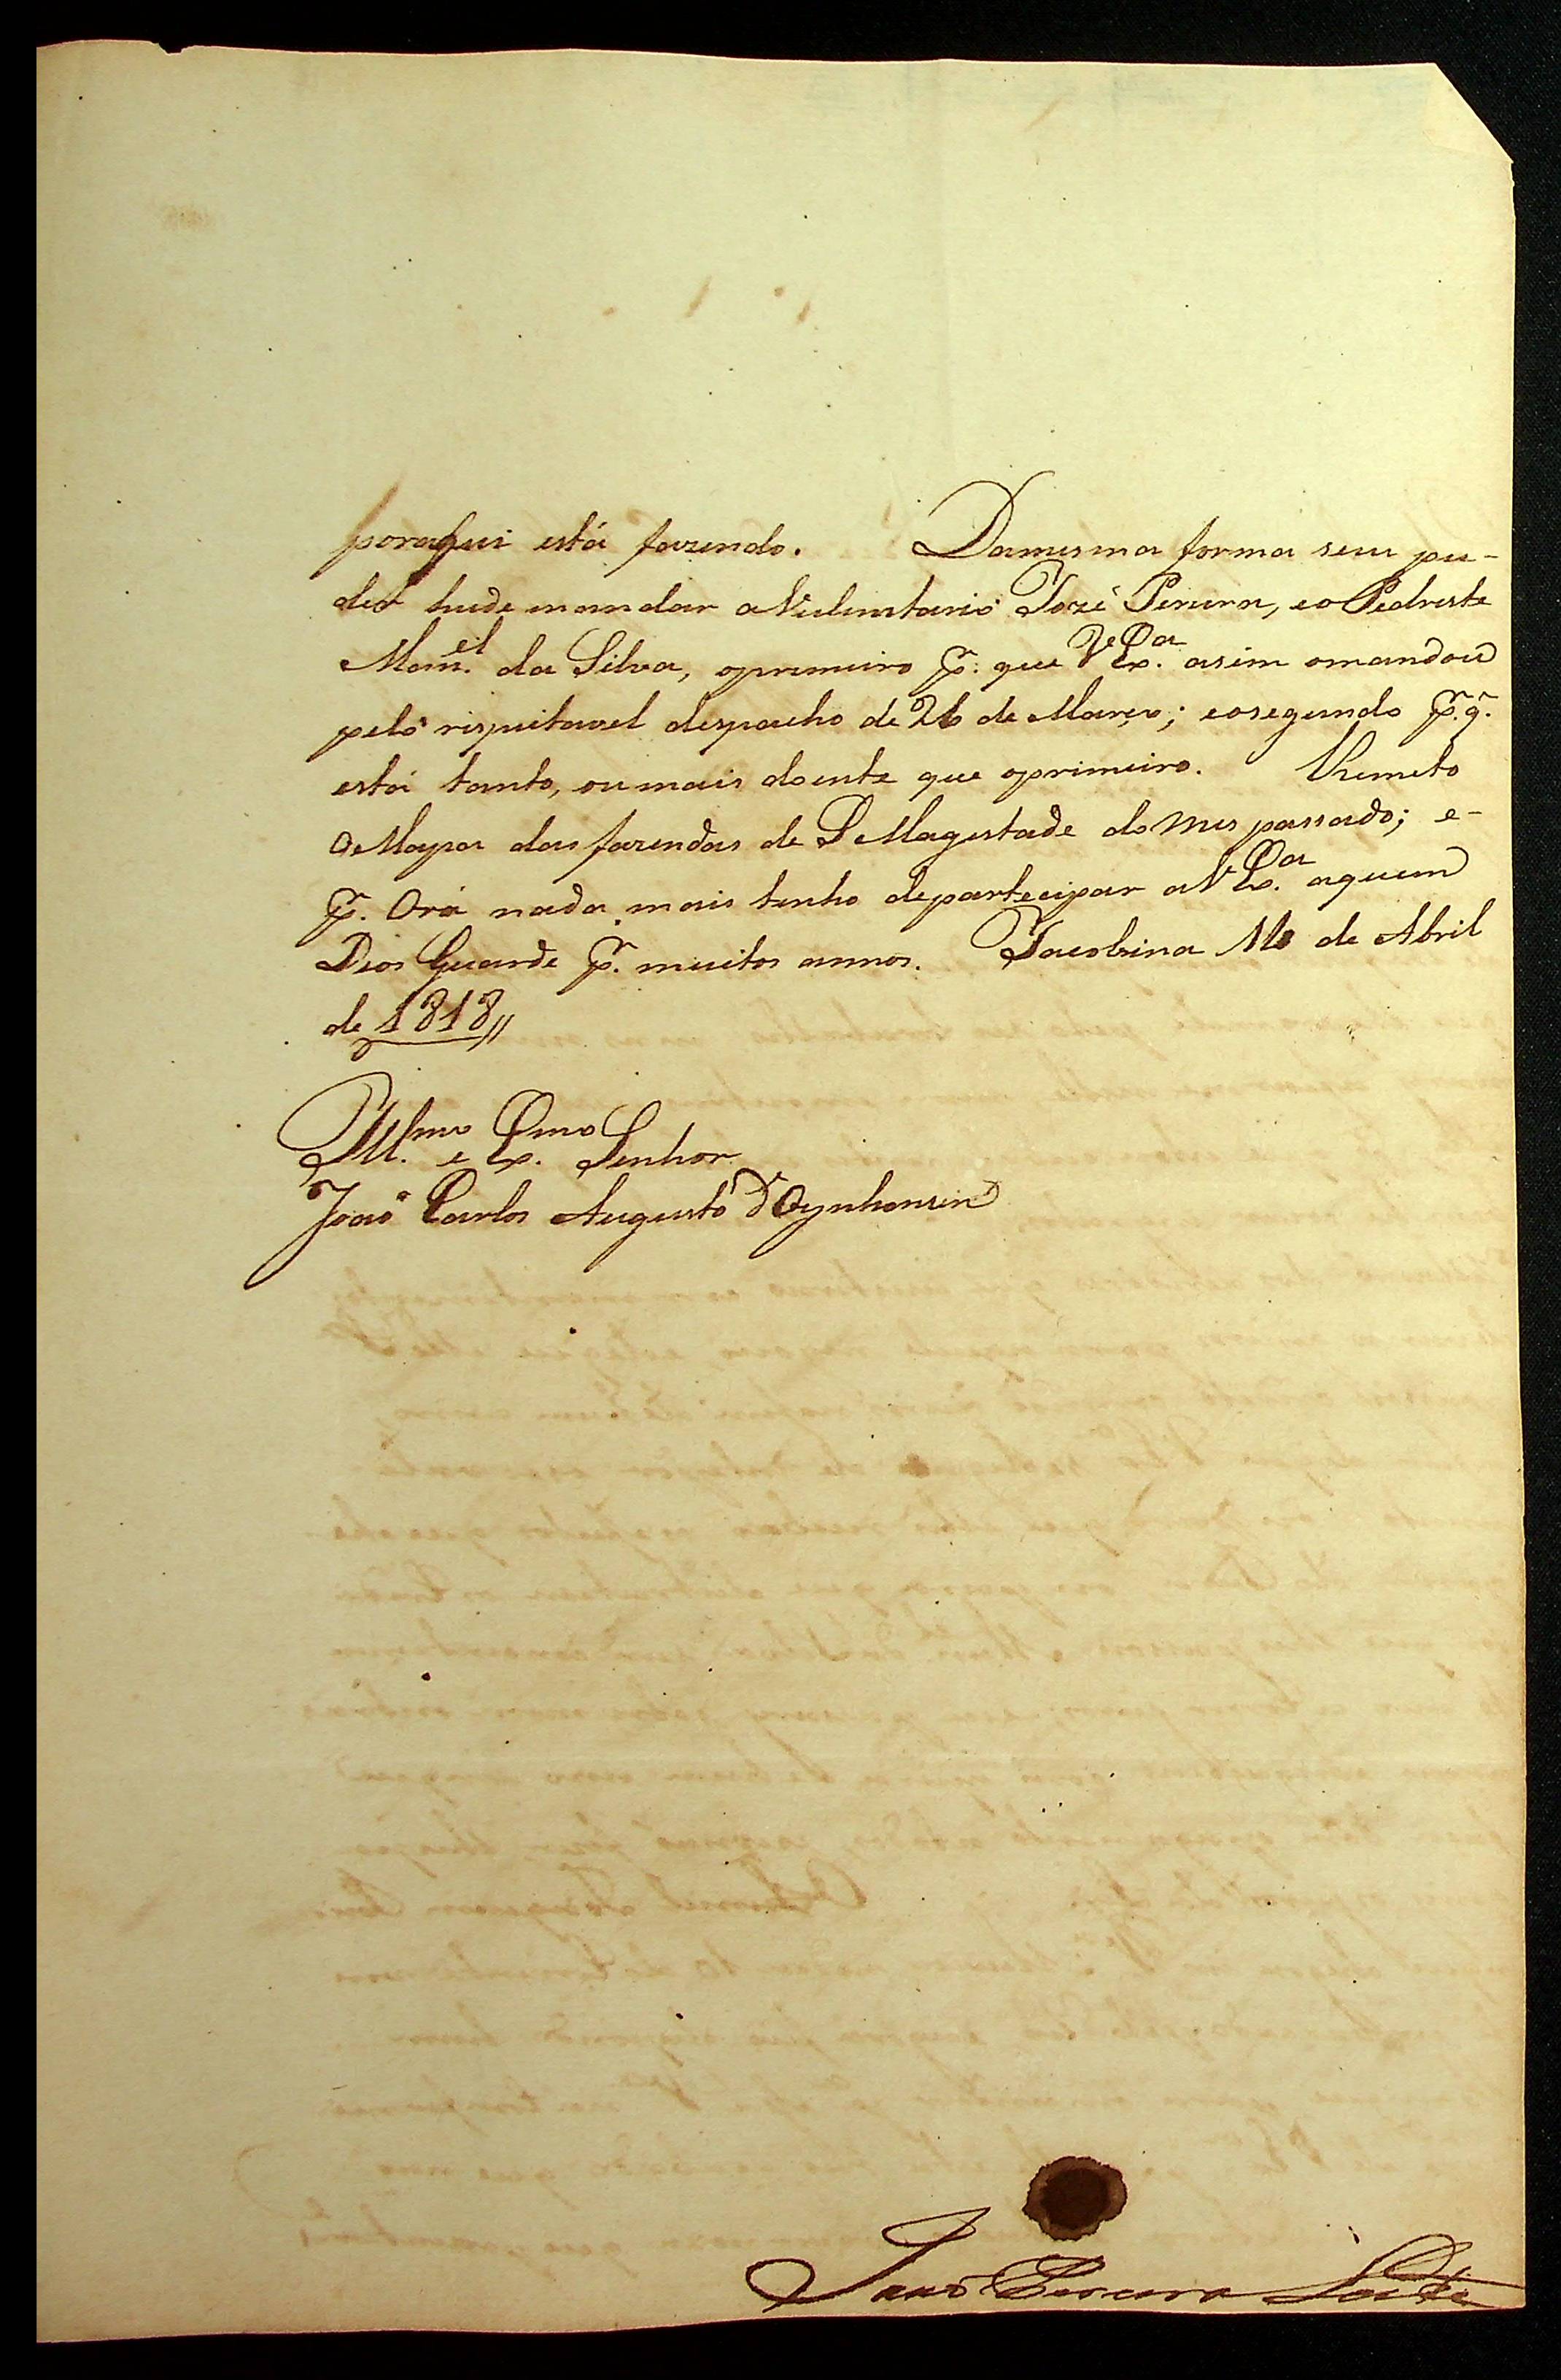 poraqui está fazendo. Damesma forma sem pu-
der hude mandar aVuluntario Jozé Perura, eo Pedreste
Man.el da Silva, oprimeiro p.ª que V Ex.ca asim omandou
pelo rispeitavel despacho de 26 de Março; eosegundo p.r q.
está tanto, ou mais doente que oprimeiro. Remeto
o Mapa das fazendas de S Magestade do mes passado; e-
p.r Ora nada mais tenho departecipar aV Ex.ca aquem
Deos Guarde p.r muitos annos. Jacobina de Abril
de 1818//
Ill.mo e Ex.mo Senhor
João Carlos Augusto d'Oynhausen
João Pereira Leite